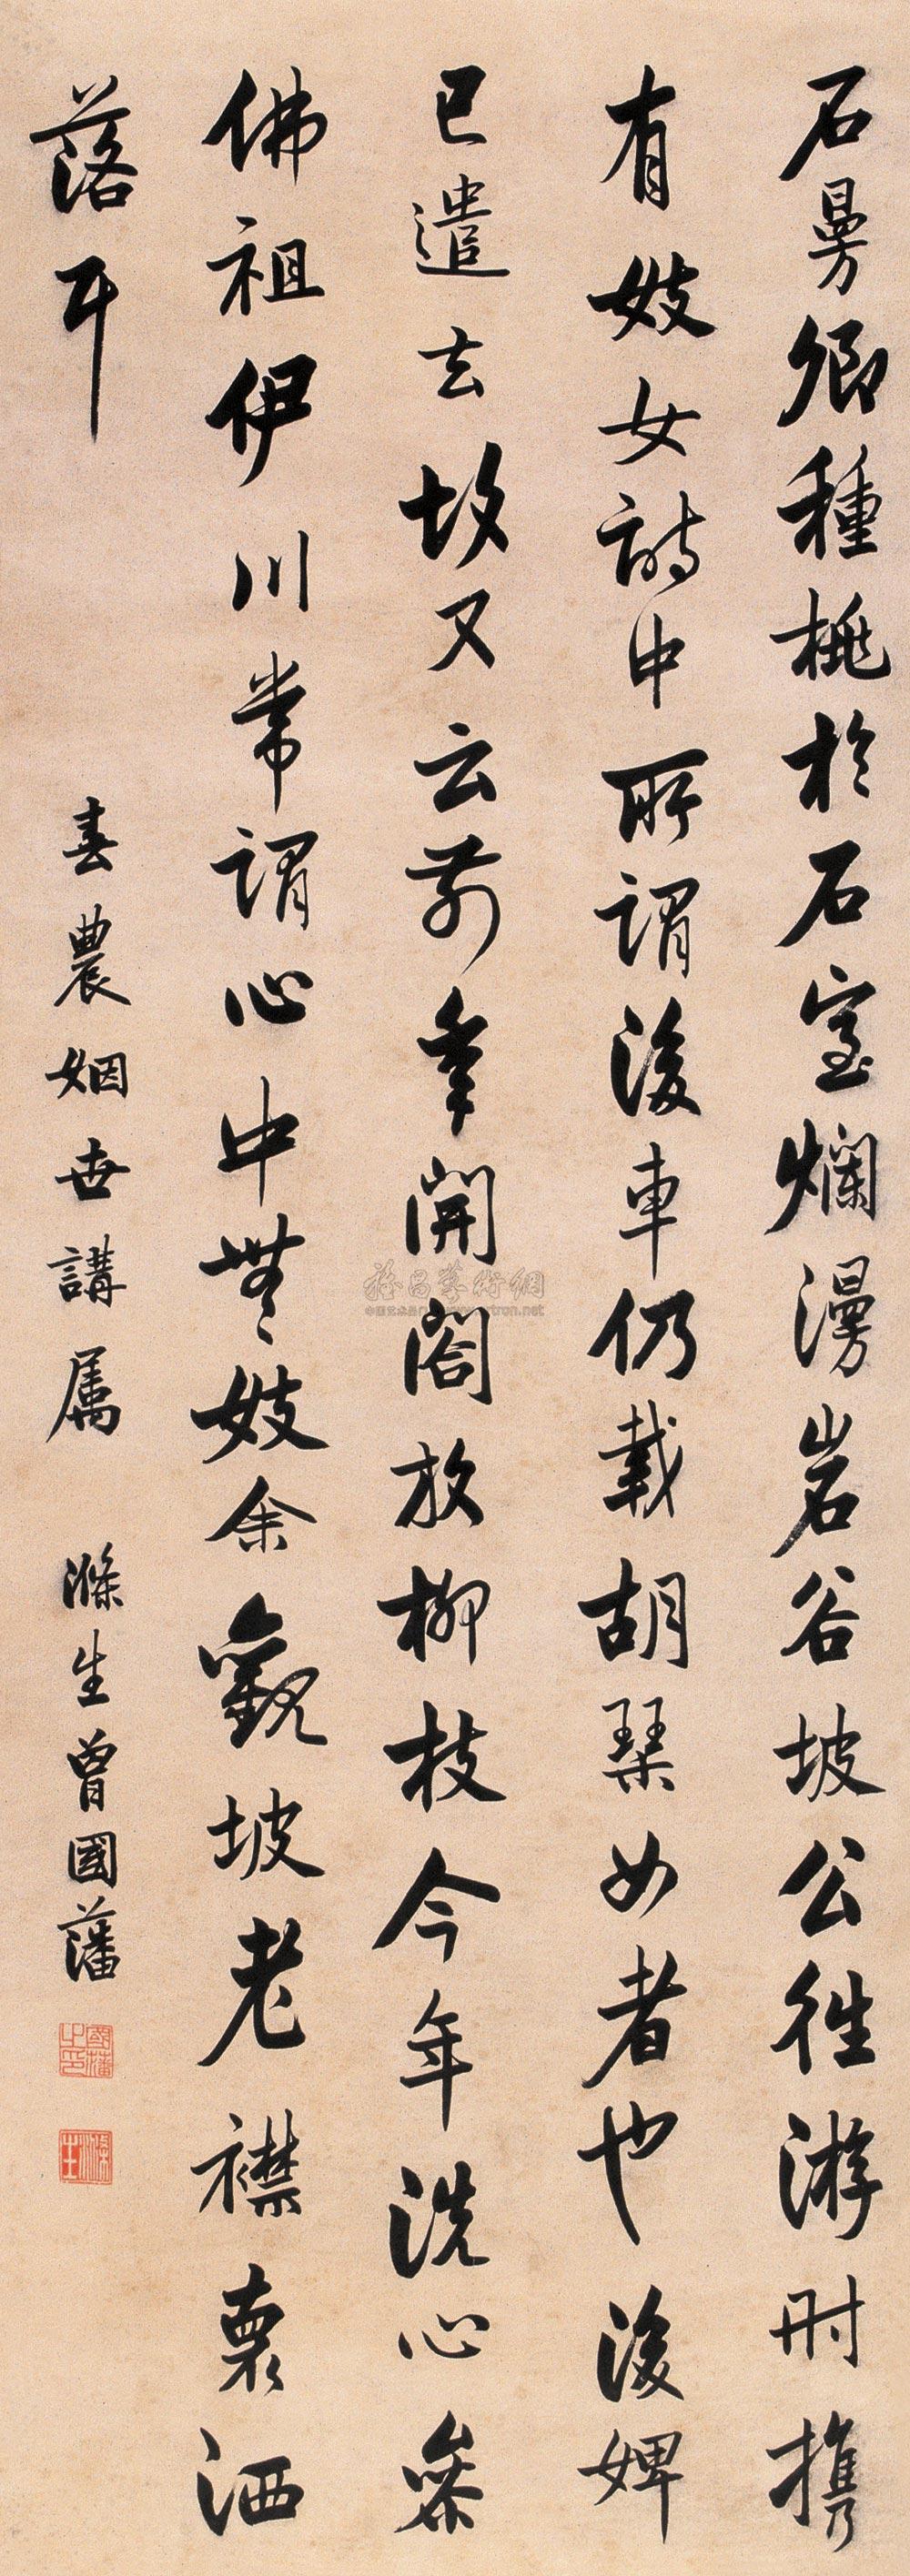 石曼卿種桃於石室爛漫岩谷坡公往游时携
有妓女詩中所謂後車仍載胡琴女者也後婢
已遣去故又云前年開閤放柳枝今年洗心參
佛祖伊川常謂心中無妓余觀坡老襟裏洒
落耳
春農姻世講属
滌生曾國藩
國藩之印
滌生